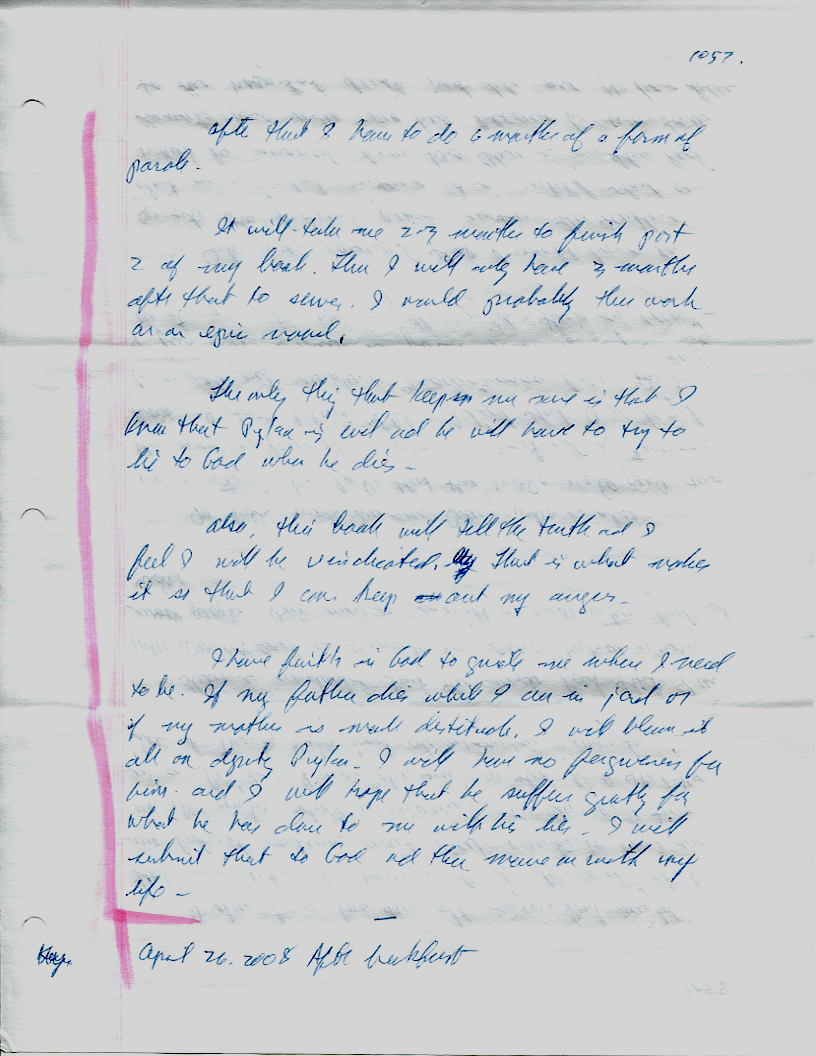 1057.
after that I have to do 6 months of a form of
parole.
It will take me 2-3 months to finish part
2 of my book. Then I will only have 3 months
after that to serve. I would probably then work
on an epic novel.
The only thing that keeps me sane is that I
know that is evil and he will have to try to
lie to God when he dies -
also, this book will tell the truth and I
feel I will be vindicated. That is what makes
it so that I can keep out my anger -
I have faith in God to guide me where I need
to be. If my father dies while I am in jail or
if my mother is made destitude, I will blame it
all on deputy I will have no forgiveness for
him and I will hope that he suffers greatly for
what he has done to me with his lies. I will
submit that to God and then move on with my
life -
April 26. 2008 After breakfast